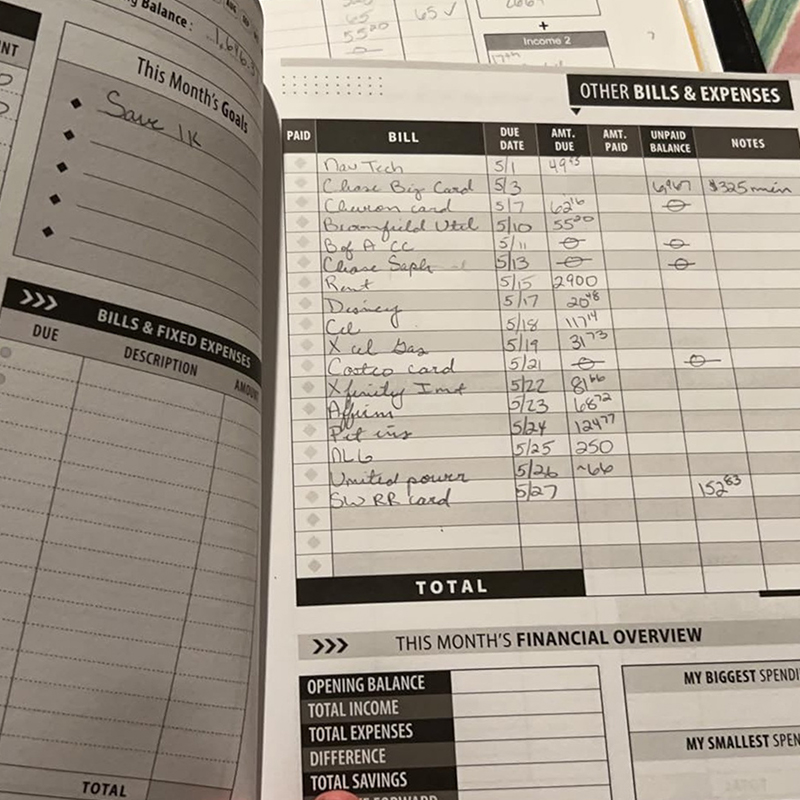 ng Balance: 1,616.3
This Month's Goals
Save 1K
BILLS & FIXED EXPENSES
DUE DESCRIPTION AMOUN
TOTAL
65 65 ✓
55 20
+
Income 2
OTHER BILLS & EXPENSES
PAID BILL DUE DATE AMT. DUE AMT. PAID UNPAID BALANCE NOTES
Nav Tech 5/1
Chase Biz Card 5/3 6,967 $325 min
Chevron card 5/7 62 16 0
Broomfield Util 5/10 55 20
B of A CC 5/11 0 0
Chase Saph 5/13 0 0
Rent 5/15 2900
Disney 5/17 20 48
Cel 5/18 117 14
Xcel Gas 5/19 31 73
Costco card 5/21 0 0
Xfinity Int 5/22 81 66
Affirm 5/23 68 72
Pet ins 5/24 124 77
NLG 5/25 250
United power 5/26 ~66
SW RR card 5/27 152 83
TOTAL
THIS MONTH'S FINANCIAL OVERVIEW
OPENING BALANCE
TOTAL INCOME
TOTAL EXPENSES
DIFFERENCE
TOTAL SAVINGS
MY BIGGEST SPENDI
MY SMALLEST SPEN